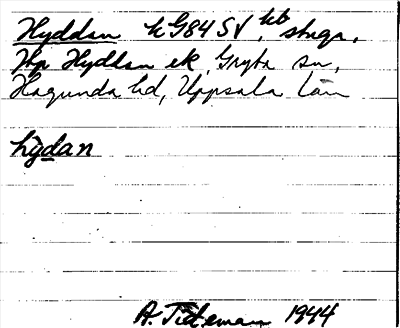 Hyddan k G84 SV, hb stuga,
Hyddan ek, Gryta sn,
Hagunda hd, Uppsala län
hỳdan
A. Tideman 1944